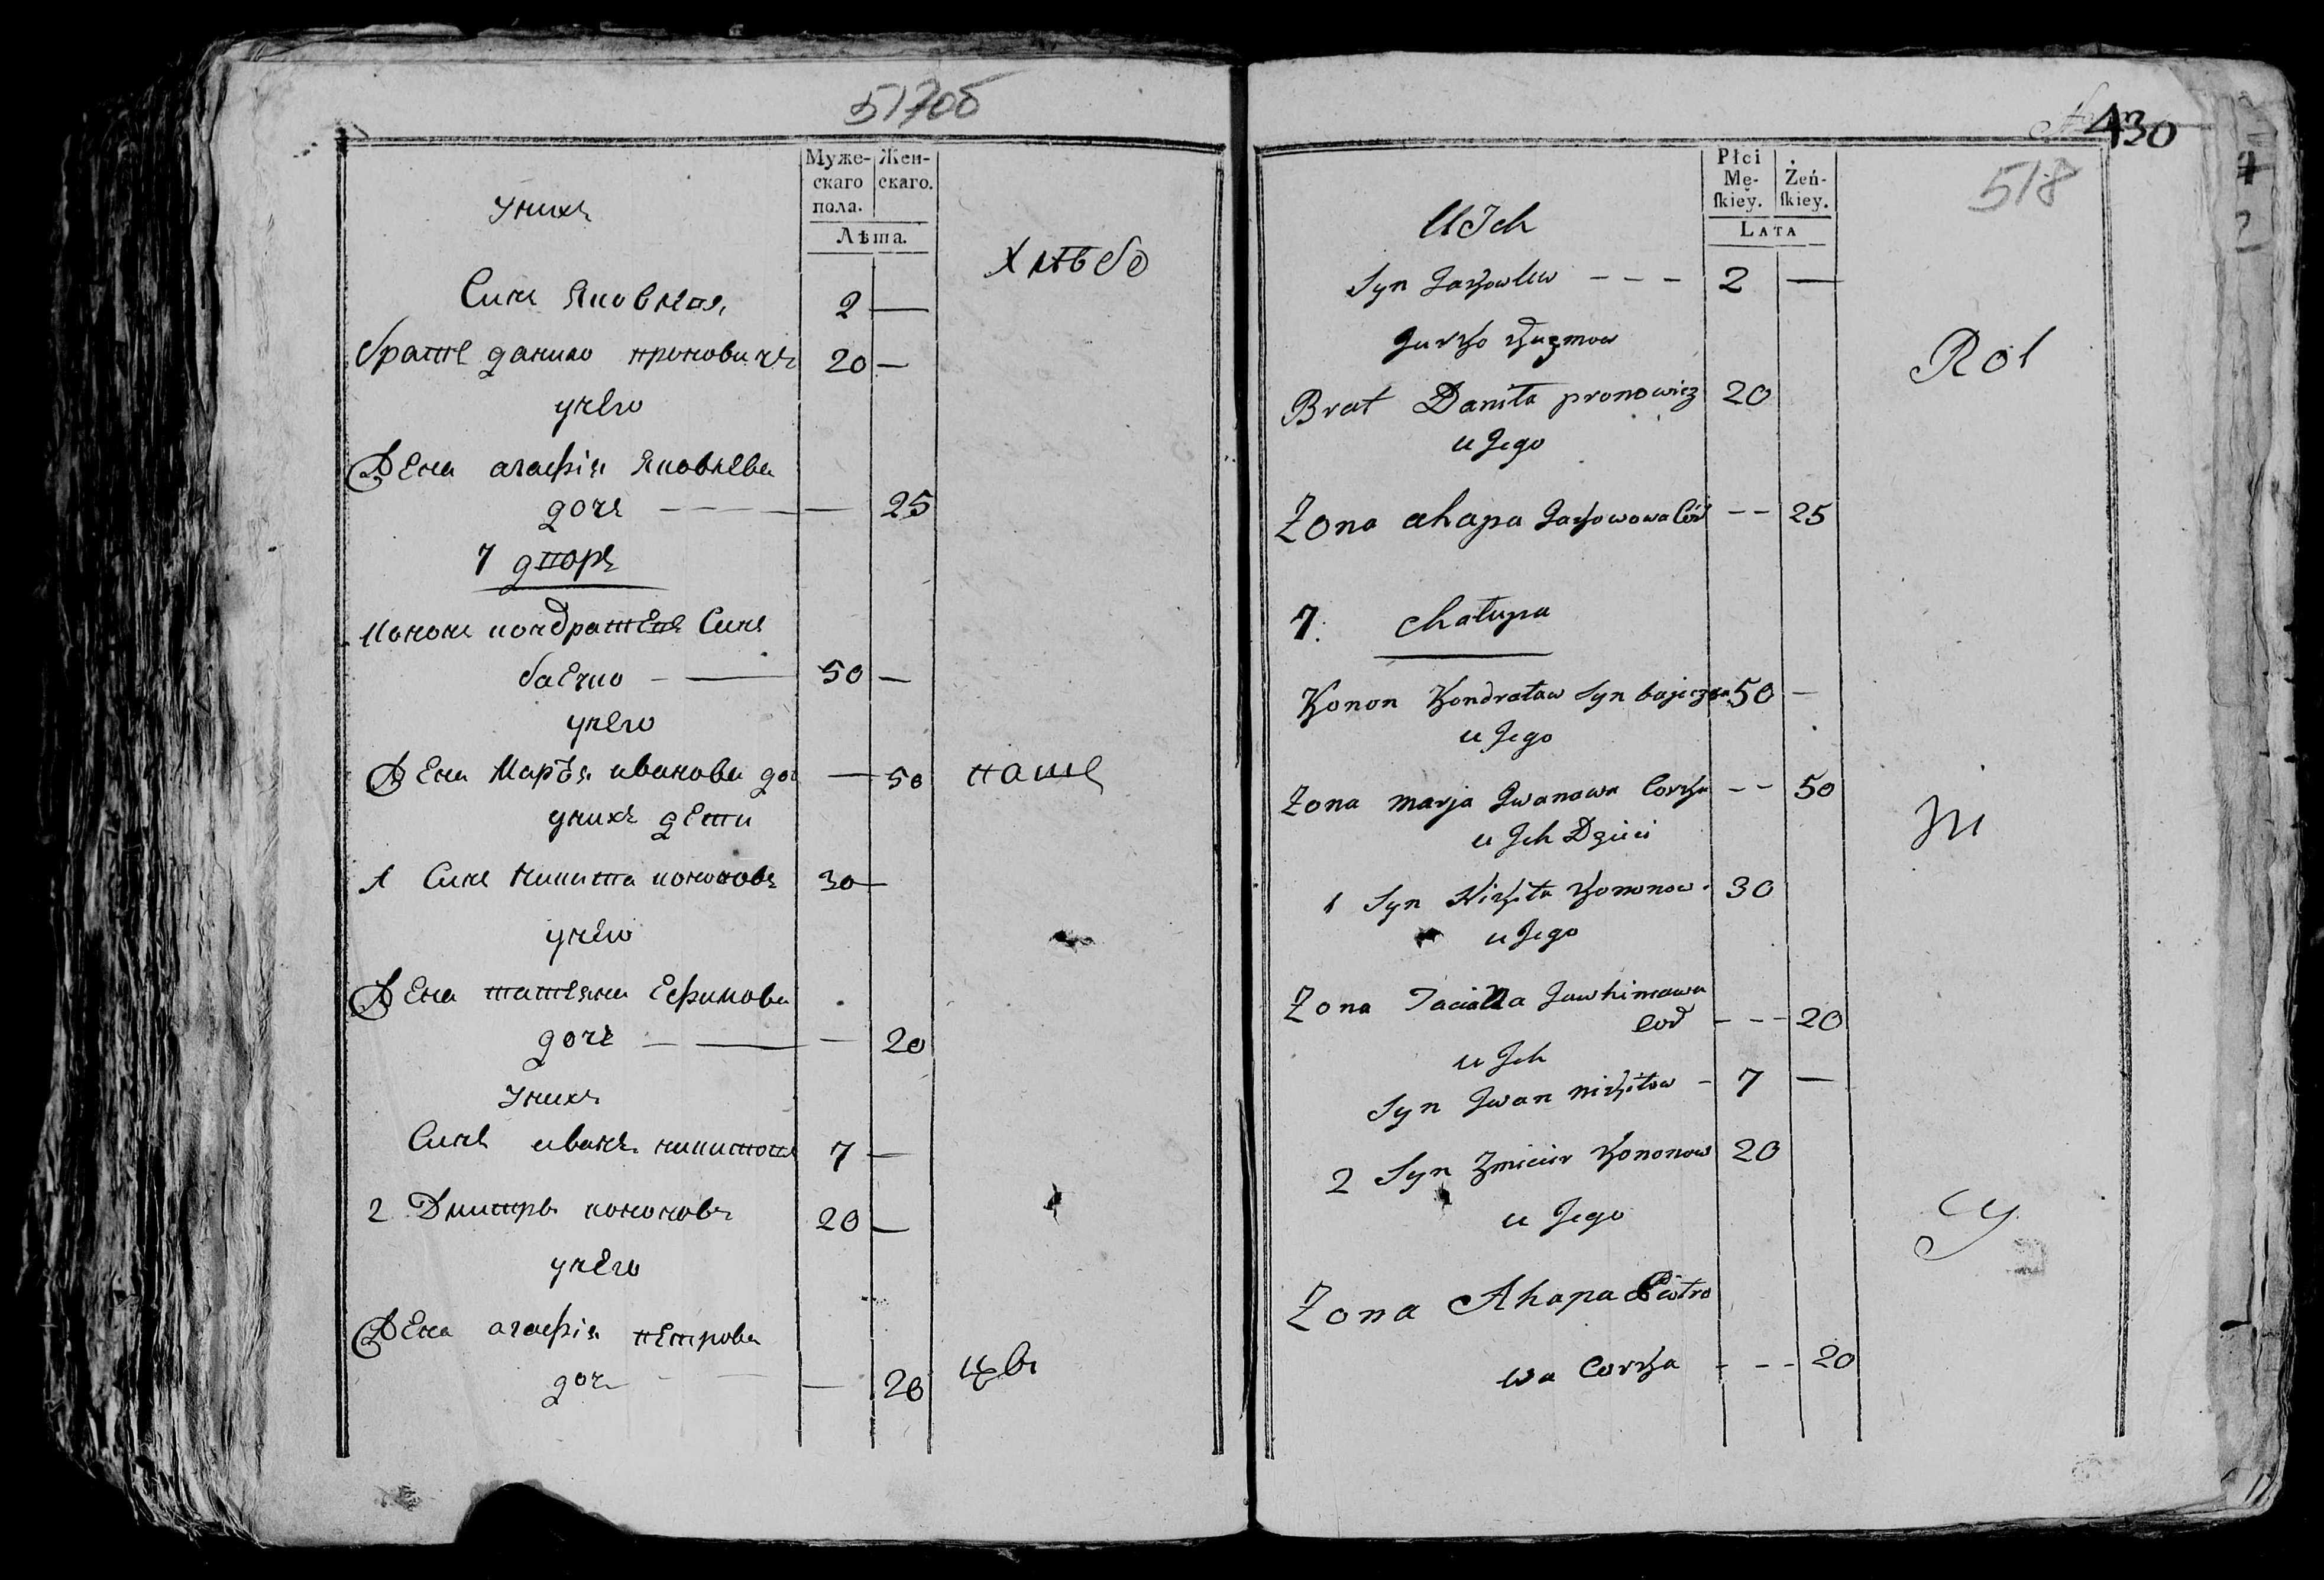 517об
Муже-
скаго
пола.
Жен-
скаго.
Лѣта.
у них
Хлѣбо
Син Яковлев 2 —
брат данило пронович 20 —
у него
Жена агафія Яковлева
доч — 25
7 двор
Конон кондратев Син
баечко — 50 —
у него
Жена Маръя иванова до — 50
паше
у них дети
1 Син Никита кононов 30 —
у него
Жена татеяна Ефимова
доч — 20
у них
Син иван никитов 7 —
2 Дмитръ кононов 20 —
у него
Жена агафія петрова
доч — 20
цъ
430
518
Płci
Mę-
skiey.
Żeń-
skiey.
LATA
U Ich
Syn Jakowlew - - - 2 —
Rol
Brat Daniła pronowicz 20
u Jego
Zona ahapa Jakowowa Cor - - 25
7. chałupa
Konon Kondrataw Syn bajeczko 50 —
u Jego
Zona marja Jwanowa Corka - - 50
ni
u Jch Dzieci
1 Syn Nikita Kononow 30
u Jego
Zona Taciana Jawhimowa
Cor - - - 20
u Jch
Syn Jwan nikitow - 7 —
2 Syn Zmicier Kononow 20
u Jego
cy
Zona Ahapa Piotro
wa Corka - - - 20